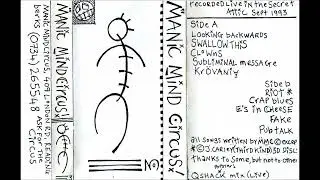 MANIC MIND CIRCUS, 409 LONDON RD, READING
berks (0734) 265548 ASK FOR THE
CIRCUS
MANIC MIND CIRCUS
MANIC MIND CIRCUS
recorded Live in the Secret
Attic Sept 1993
Side A
Looking backwards
SWALLOW THIS
CLOWNS
SUBLIMINAL MESSAGE
KROVANIY
Side b
RIOT *
CRAP blues
E'S in CHEESE
FAKE
PUB TALK
all SONGS written by MMC
thanks to Some, but not to other
QSHACK mtx (Live)